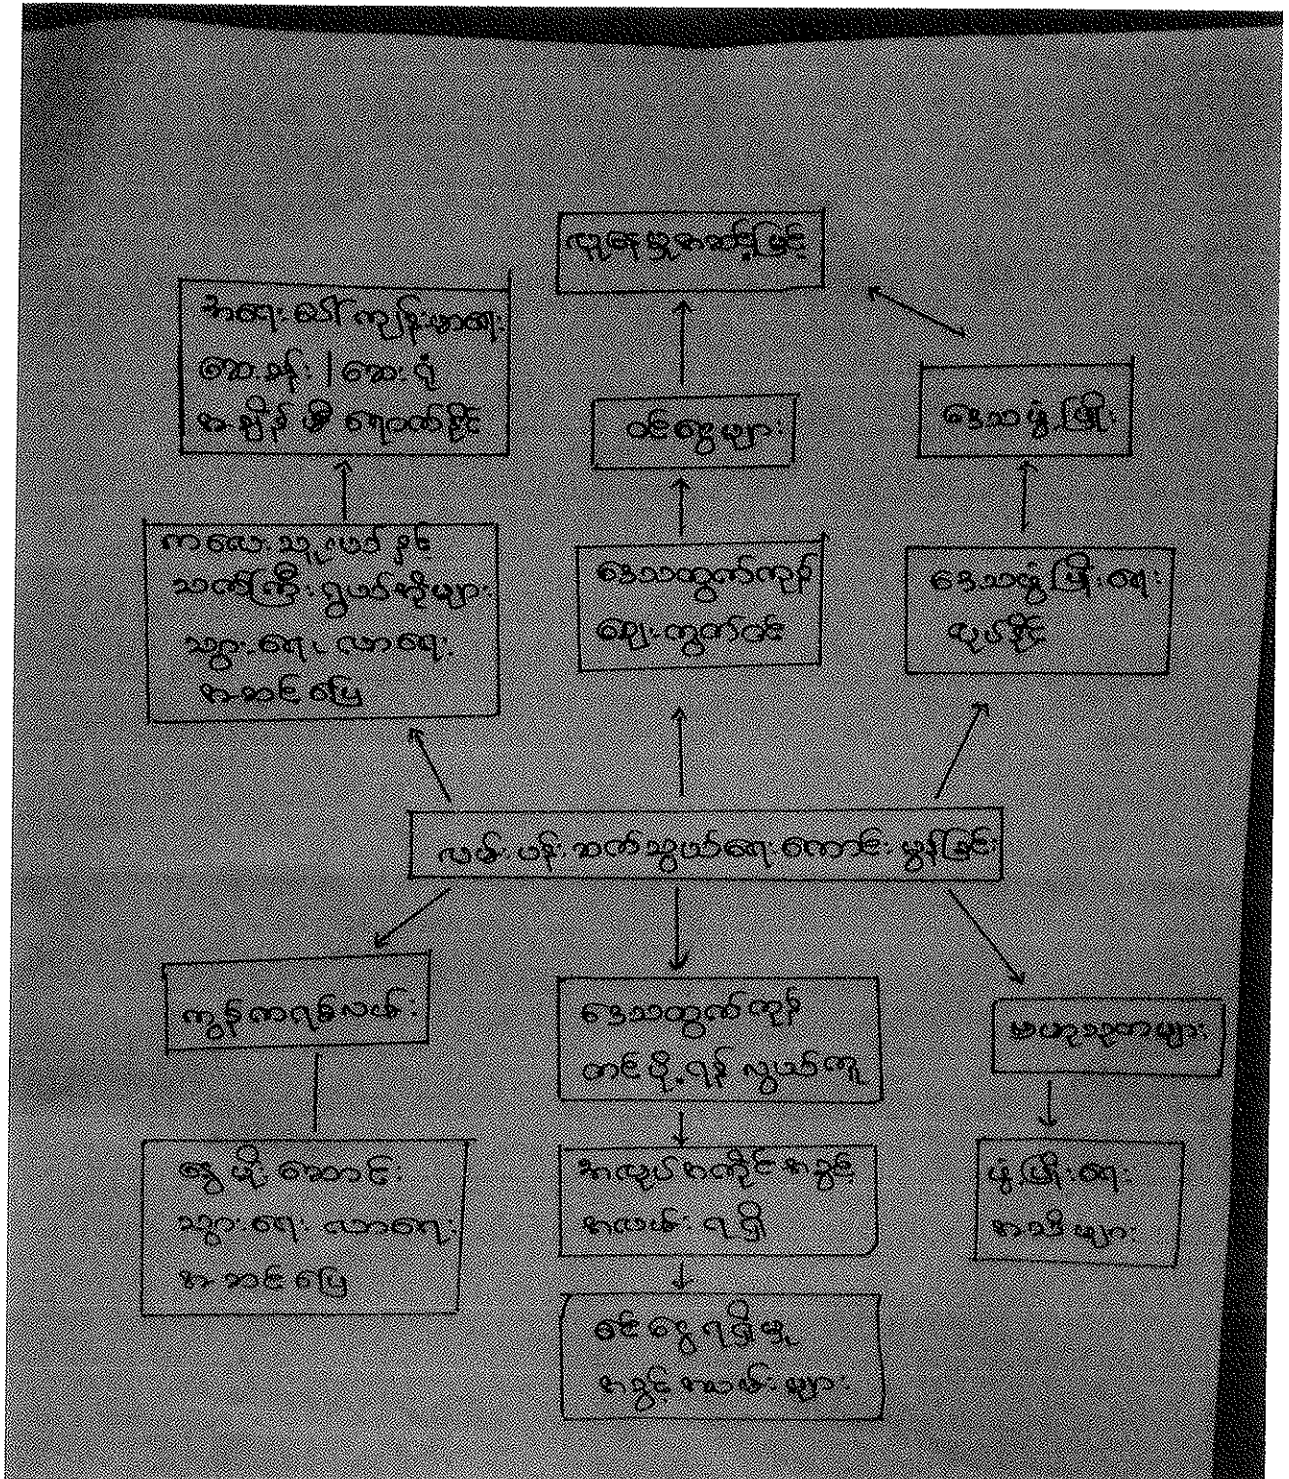 လူနေမှုအဆင့်မြင့်
အရေးပေါ်ကျန်းမာရေး
ဆေးခန်း | ဆေးရုံ
အချိန်မီ ရောက်နိုင်
ဝင်ငွေများ
ဒေသဖွံ့ဖြိုး
ကလေးသူငယ်နှင့်
သက်ကြီးရွယ်အိုများ
သွားရေးလာရေး
အဆင်ပြေ
ဒေသထွက်ကုန်
ဈေးကွက်ဝင်
ဒေသဖွံ့ဖြိုးရေး
လုပ်နိုင်
လမ်းပန်းဆက်သွယ်ရေးကောင်းမွန်ခြင်း
ကွန်ကရစ်လမ်း
ဒေသထွက်ကုန်
တင်ပို့ရန် လွယ်ကူ
မဟာသုကများ
နွေ မိုး ဆောင်း
သွားရေးလာရေး
အဆင်ပြေ
အလုပ်အကိုင်အခွင့်
အလမ်းရရှိ
ဖွံ့ဖြိုးရေး
ဝင်ငွေရရှိမှု
အခွင့်အလမ်းများ